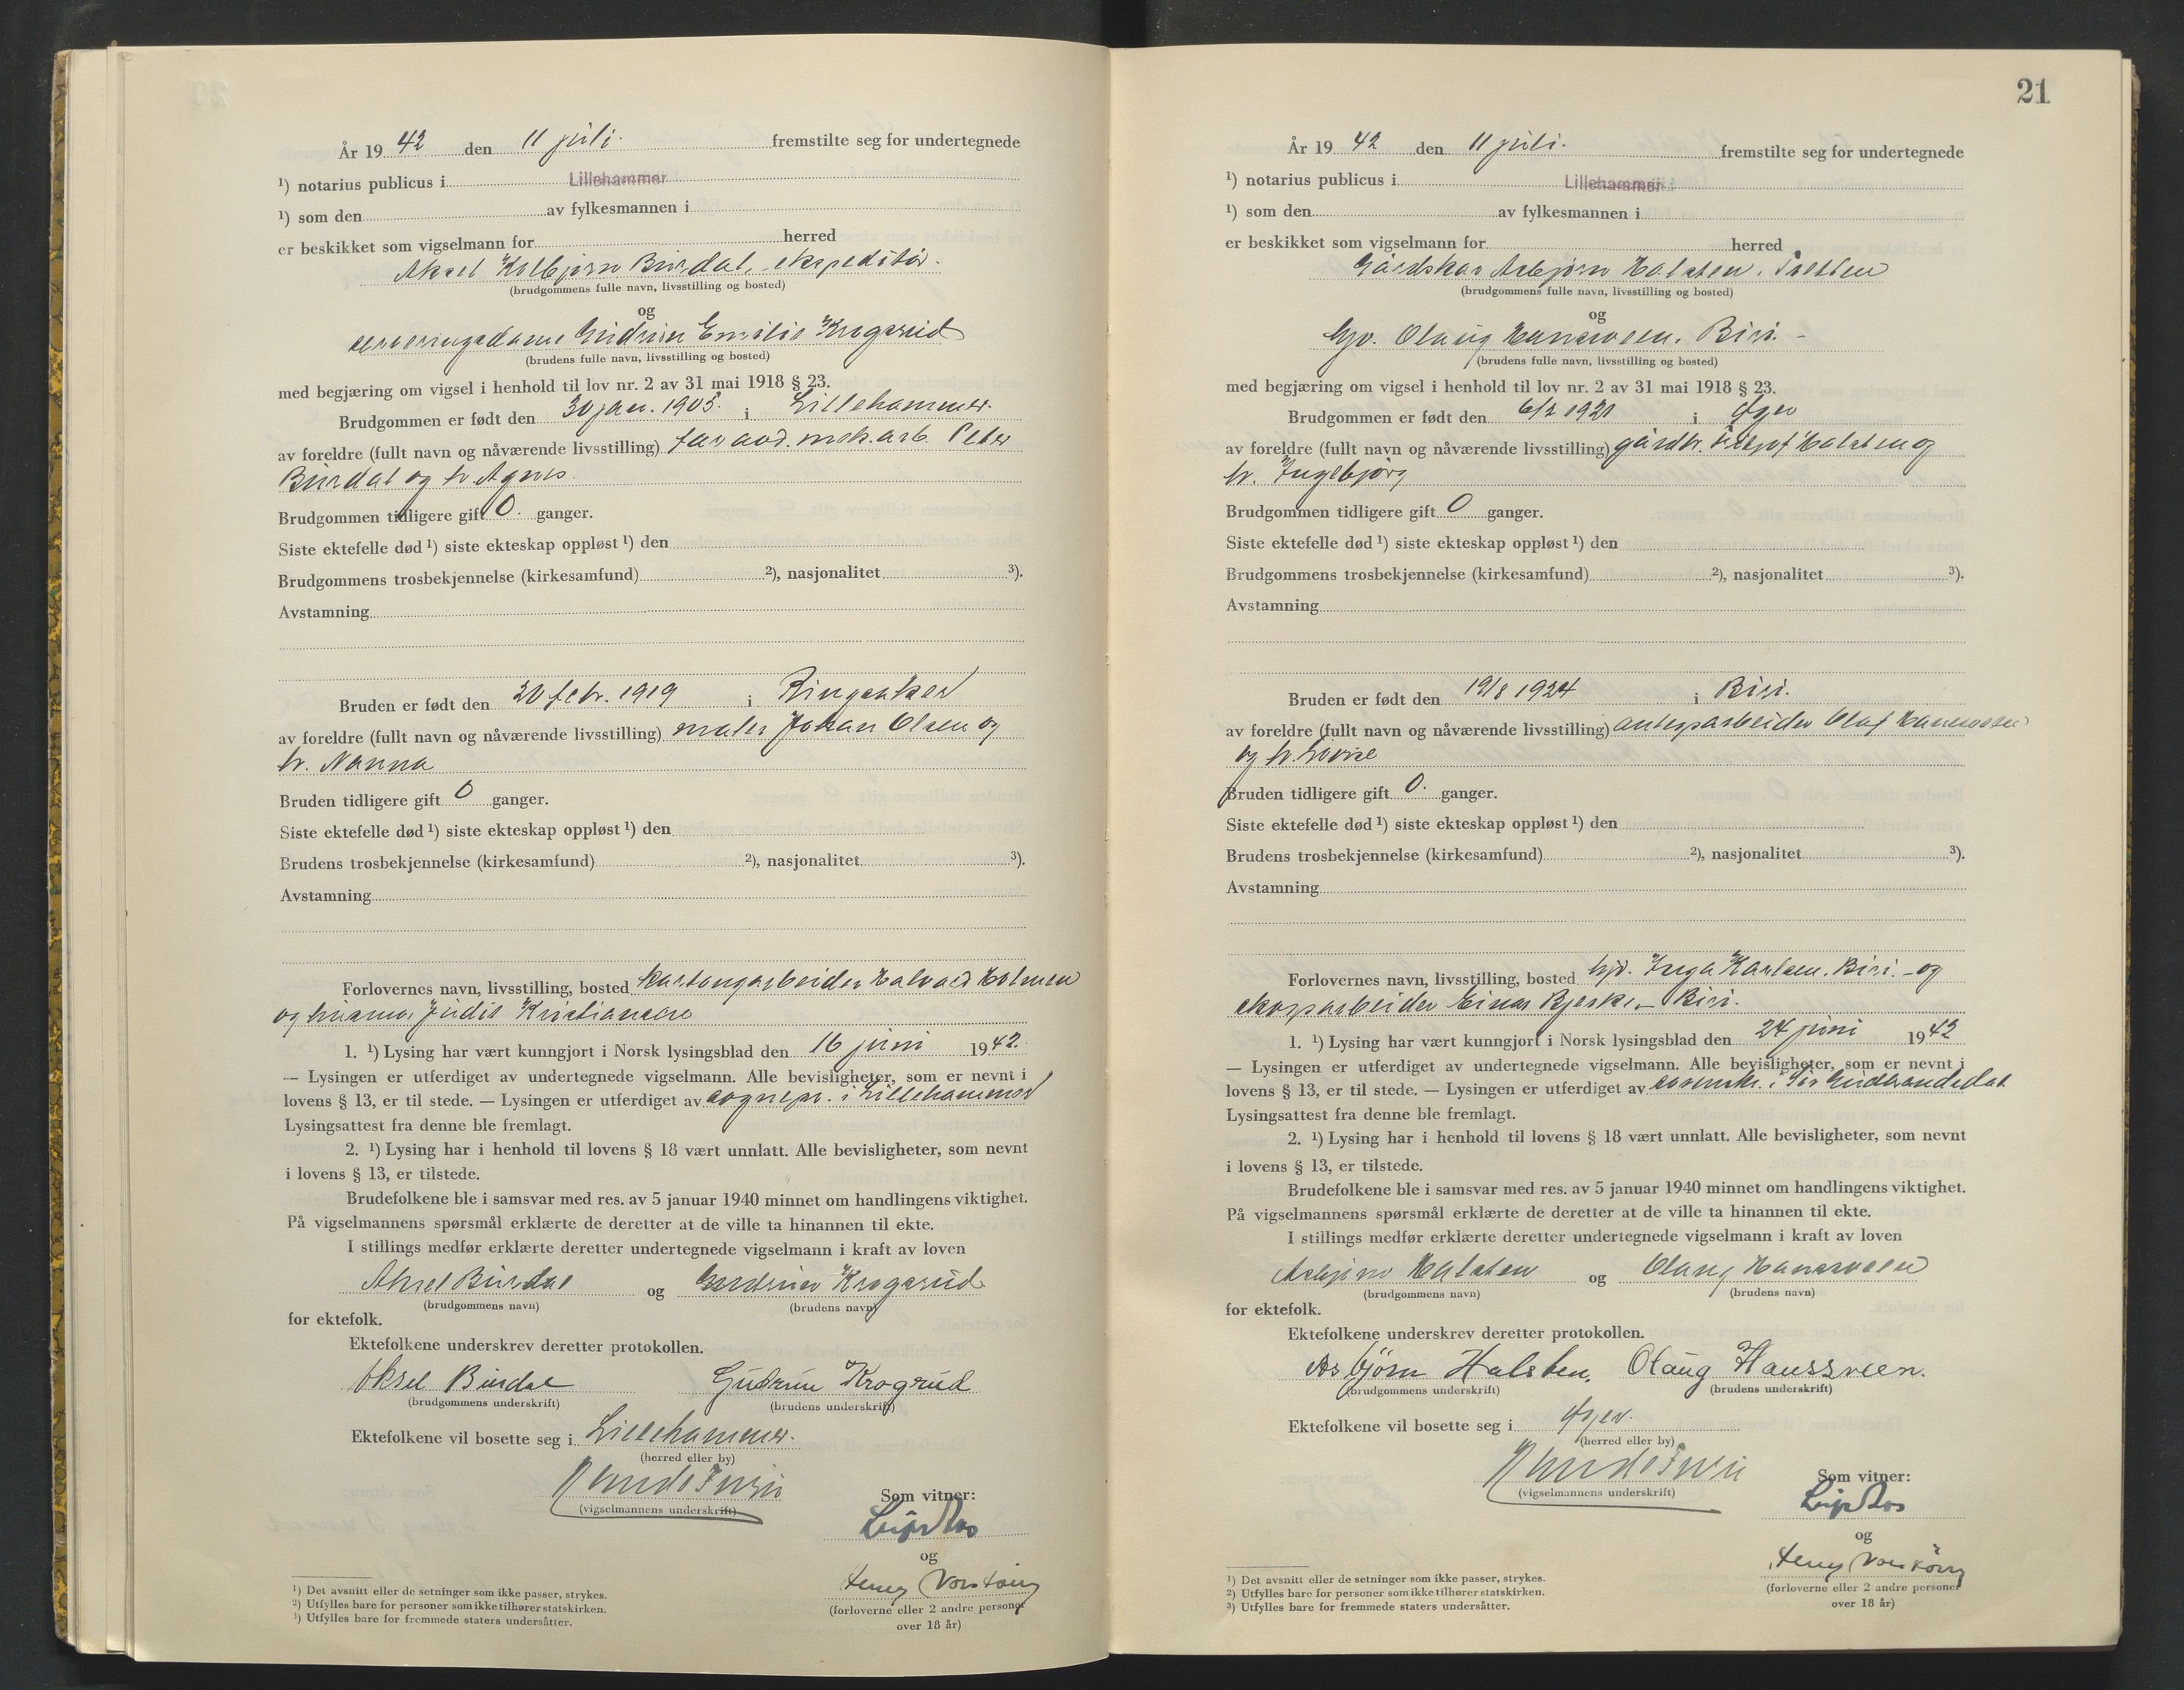 År 19 42 den 11 juli. fremstilte seg for undertegnede
¹) notarius publicus i Lillehammer
¹) som den av fylkesmannen i
er beskikket som vigselmann for herred
Aksel Kolbjørn Burdal, ekspeditør.
(brudgommens fulle navn, livsstilling og bosted)
og
serveringsdame Gudrun Emilie Krogsrud
(brudens fulle navn, livsstilling og bosted)
med begjæring om vigsel i henhold til lov nr. 2 av 31 mai 1918 § 23.
Brudgommen er født den 30 jan. 1905. i Lillehammer.
av foreldre (fullt navn og nåværende livsstilling) mek.arb. Peter
Burdal og h. Agnes.
Brudgommen tidligere gift 0. ganger.
Siste ektefelle død ¹) siste ekteskap oppløst ¹) den
Brudgommens trosbekjennelse (kirkesamfund) ²), nasjonalitet ³).
Avstamning
Bruden er født den 20 febr. 1919 i Ringsaker
av foreldre (fullt navn og nåværende livsstilling) maler Johan Olsen og
h. Nanna
Bruden tidligere gift 0 ganger.
Siste ektefelle død ¹) siste ekteskap oppløst ¹) den
Brudens trosbekjennelse (kirkesamfund) ²), nasjonalitet ³).
Avstamning
Forlovernes navn, livsstilling, bosted kartongarbeider Halvard Holmen
og husmor Judit Kristiansen
1. ¹) Lysing har vært kunngjort i Norsk lysingsblad den 16 juni 1942.
— Lysingen er utferdiget av undertegnede vigselmann. Alle bevisligheter, som er nevnt i
lovens § 13, er til stede. — Lysingen er utferdiget av sognepr. i Lillehammer
Lysingsattest fra denne ble fremlagt.
2. ¹) Lysing har i henhold til lovens § 18 vært unnlatt. Alle bevisligheter, som nevnt
i lovens § 13, er tilstede.
Brudefolkene ble i samsvar med res. av 5 januar 1940 minnet om handlingens viktighet.
På vigselmannens spørsmål erklærte de deretter at de ville ta hinannen til ekte.
I stillings medfør erklærte deretter undertegnede vigselmann i kraft av loven
Aksel Burdal og Gudrun Krogsrud
(brudgommens navn) (brudens navn)
for ektefolk.
Ektefolkene underskrev deretter protokollen.
Aksel Burdal Gudrun Krogrud
(brudgommens underskrift) (brudens underskrift)
Ektefolkene vil bosette seg i Lillehammer.
(herred eller by)
(vigselmannens underskrift)
Som vitner:
og
(forloverne eller 2 andre personer
over 18 år)
¹) Det avsnitt eller de setninger som ikke passer, strykes.
²) Utfylles bare for personer som ikke tilhører statskirken.
³) Utfylles bare for fremmede staters undersåtter.
21
År 19 42 den 11 juli. fremstilte seg for undertegnede
¹) notarius publicus i Lillehammer
¹) som den av fylkesmannen i
er beskikket som vigselmann for herred
Gårdskar Asbjørn Halsten, Tretten
(brudgommens fulle navn, livsstilling og bosted)
og
hjv. Olaug Hanssveen, Biri. -
(brudens fulle navn, livsstilling og bosted)
med begjæring om vigsel i henhold til lov nr. 2 av 31 mai 1918 § 23.
Brudgommen er født den 6/2 1921 i Øyer
av foreldre (fullt navn og nåværende livsstilling) gårdbr. Halsten og
h. Ingebjørg
Brudgommen tidligere gift 0 ganger.
Siste ektefelle død ¹) siste ekteskap oppløst ¹) den
Brudgommens trosbekjennelse (kirkesamfund) ²), nasjonalitet ³).
Avstamning
Bruden er født den 19/8 1924 i Biri.
av foreldre (fullt navn og nåværende livsstilling) anleggsarbeider Olaf Hanssveen
og h. Lovise
Bruden tidligere gift 0. ganger.
Siste ektefelle død ¹) siste ekteskap oppløst ¹) den
Brudens trosbekjennelse (kirkesamfund) ²), nasjonalitet ³).
Avstamning
Forlovernes navn, livsstilling, bosted hjv. Inga Karlsen, Biri. - og
skogsarbeider Einar Bjerke, - Biri.
1. ¹) Lysing har vært kunngjort i Norsk lysingsblad den 24 juni 1942
— Lysingen er utferdiget av undertegnede vigselmann. Alle bevisligheter, som er nevnt i
lovens § 13, er til stede. — Lysingen er utferdiget av sorenskr. i Sør Gudbrandsdal
Lysingsattest fra denne ble fremlagt.
2. ¹) Lysing har i henhold til lovens § 18 vært unnlatt. Alle bevisligheter, som nevnt
i lovens § 13, er tilstede.
Brudefolkene ble i samsvar med res. av 5 januar 1940 minnet om handlingens viktighet.
På vigselmannens spørsmål erklærte de deretter at de ville ta hinannen til ekte.
I stillings medfør erklærte deretter undertegnede vigselmann i kraft av loven
Asbjørn Halsten og Olaug Hanssveen
(brudgommens navn) (brudens navn)
for ektefolk.
Ektefolkene underskrev deretter protokollen.
Asbjørn Halsten, Olaug Hanssveen.
(brudgommens underskrift) (brudens underskrift)
Ektefolkene vil bosette seg i Øyer.
(herred eller by)
(vigselmannens underskrift)
Som vitner:
og
(forloverne eller 2 andre personer
over 18 år)
¹) Det avsnitt eller de setninger som ikke passer, strykes.
²) Utfylles bare for personer som ikke tilhører statskirken.
³) Utfylles bare for fremmede staters undersåtter.